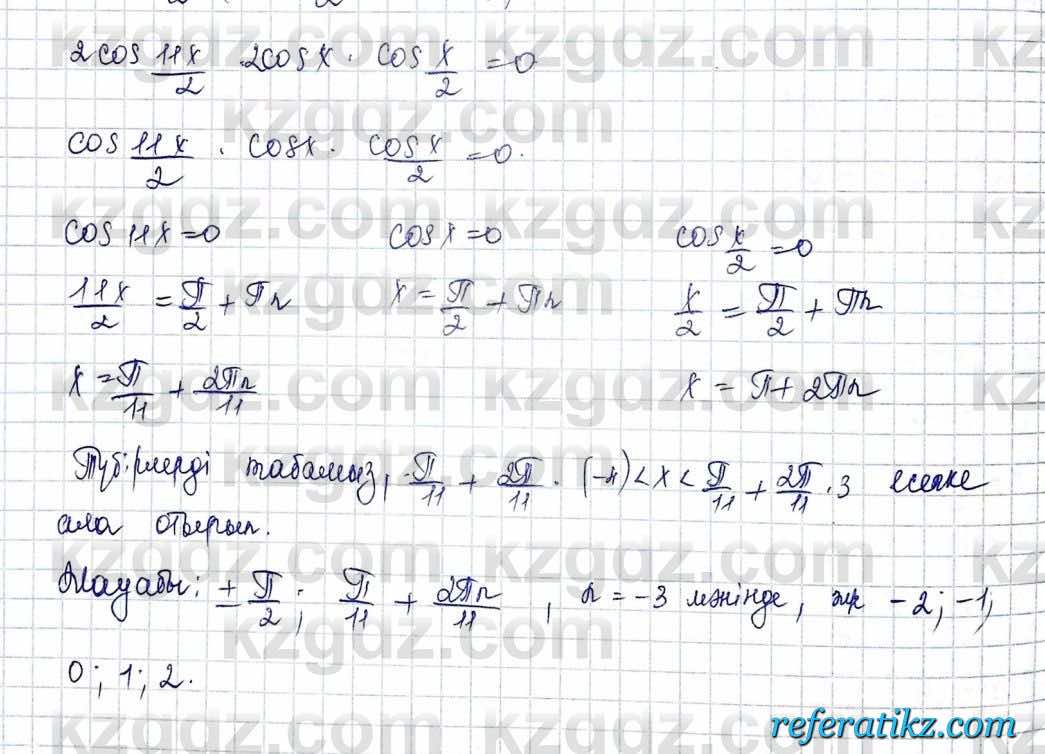 2cos 11x/2 · 2cos x · cos x/2 = 0
cos 11x/2 · cos x · cos x/2 = 0.
cos 11x = 0 cos x = 0 cos x/2 = 0
11x/2 = π/2 + πn x = π/2 + πn x/2 = π/2 + πn
x = π/11 + 2πn/11 x = π + 2πn
Түбірлерді табамыз, π/11 + 2π/11 · (-4) < x < π/11 + 2π/11 · 3 есепке
ала отырып.
Жауабы: ± π/2; π/11 + 2πn/11, n = -3 мәнінде, -2; -1;
0; 1; 2.
kzgdz.com
referatikz.com